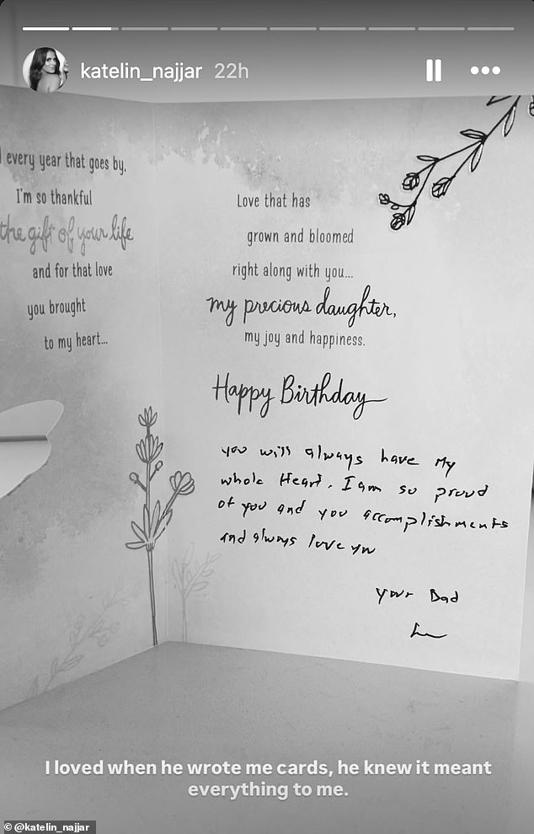 katelin_najjar 22h
every year that goes by,
I'm so thankful
the gift of your life
and for that love
you brought
to my heart...
Love that has
grown and bloomed
right along with you...
my precious daughter,
my joy and happiness.
Happy Birthday
you will always have my
whole Heart. I am so proud
of you and you accomplishments
and always love you
your Dad
I loved when he wrote me cards, he knew it meant
everything to me.
© @katelin_najjar